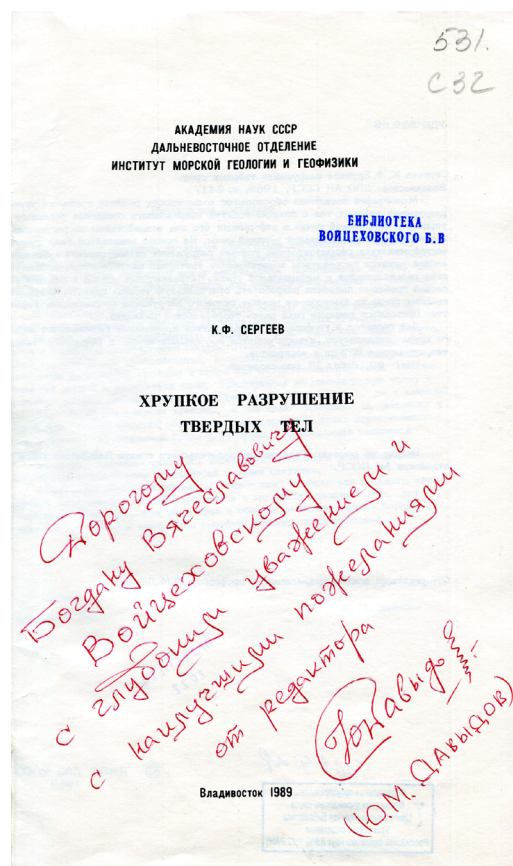 531.
С32
АКАДЕМИЯ НАУК СССР
ДАЛЬНЕВОСТОЧНОЕ ОТДЕЛЕНИЕ
ИНСТИТУТ МОРСКОЙ ГЕОЛОГИИ И ГЕОФИЗИКИ
БИБЛИОТЕКА
ВОЙЦЕХОВСКОГО Б.В
К.Ф. СЕРГЕЕВ
ХРУПКОЕ РАЗРУШЕНИЕ
ТВЕРДЫХ ТЕЛ
Дорогому
Богдану Вячеславовичу
Войцеховскому
с глубоким уважением и
с наилучшими пожеланиями
от редактора
(Ю.М. ДАВЫДОВ)
Владивосток 1989